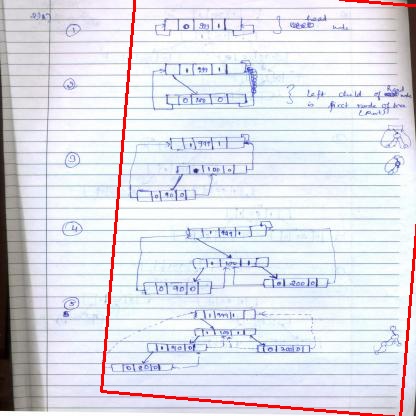 ①
0 999 1
head
node
②
1 999 1
0 100 0
Left child of head node
is first node of tree
(Root)
③
1 999 1
100 0
0 90 0
④
1 999 1
1 100 1
0 90 0
0 200 0
⑤
1 999 1
1 100 1
1 90 0
0 200 0
0 80 0